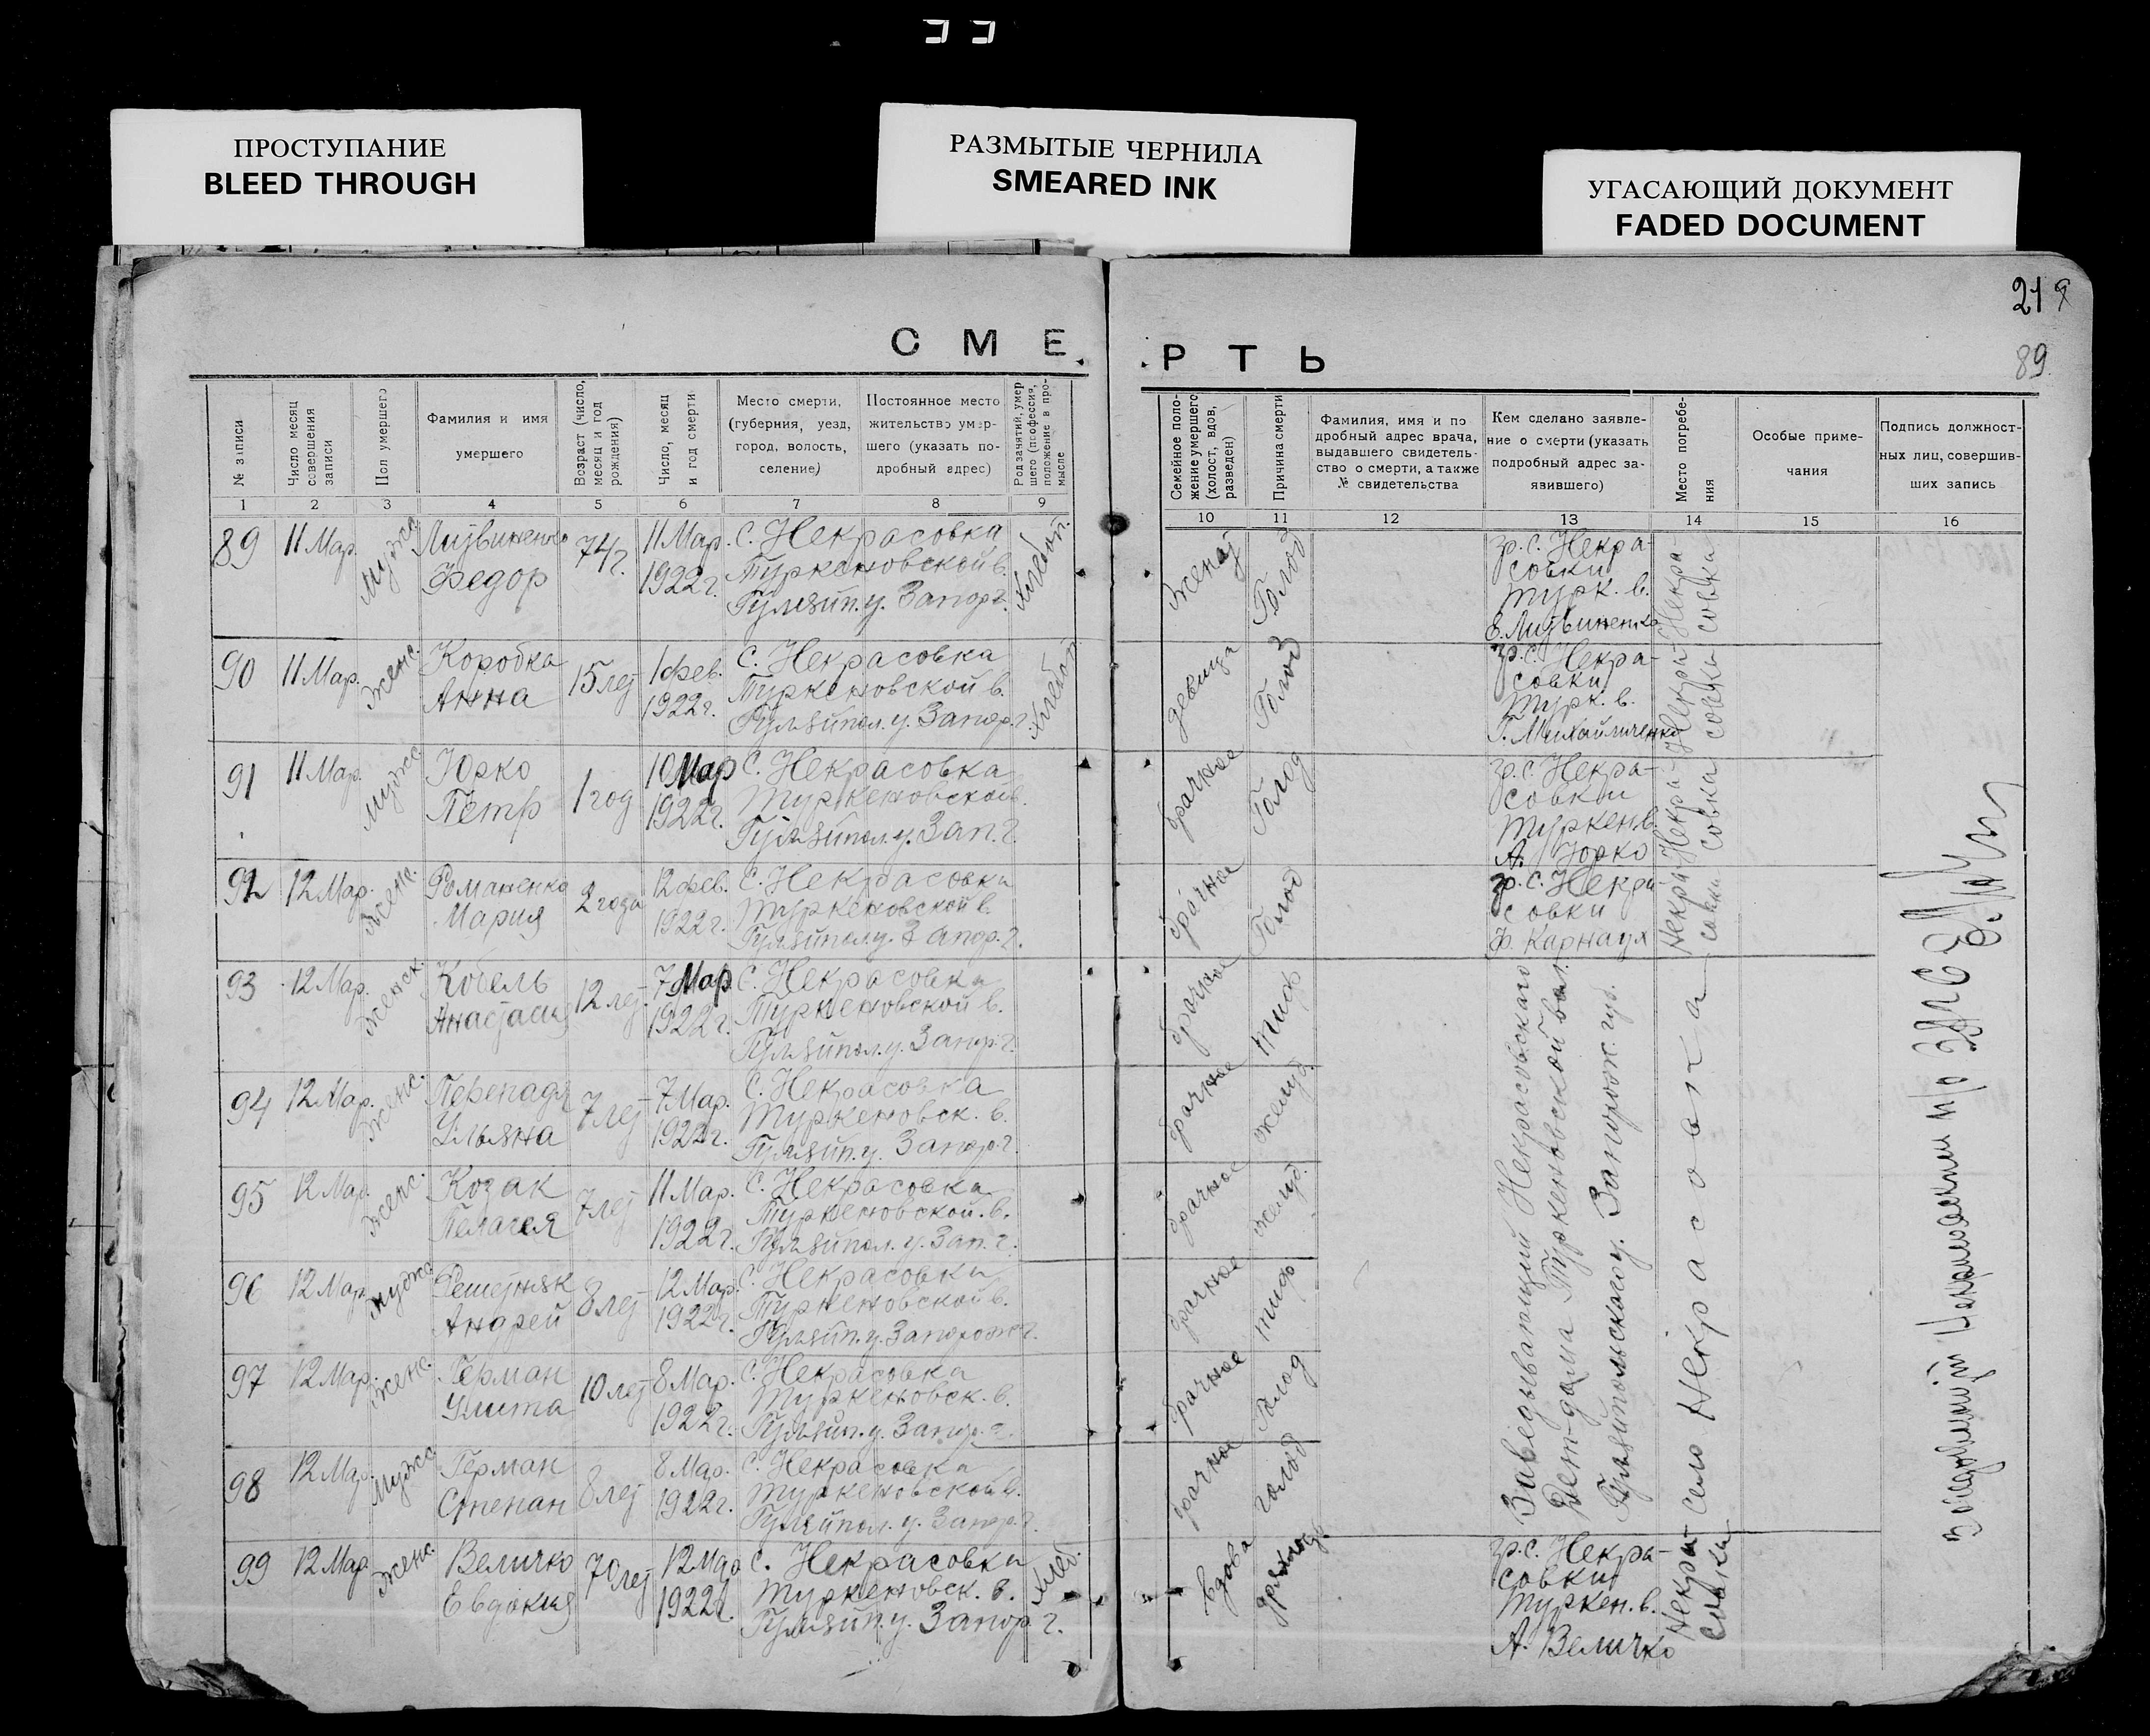 ПРОСТУПАНИЕ
BLEED THROUGH
РАЗМЫТЫЕ ЧЕРНИЛА
SMEARED INK
УГАСАЮЩИЙ ДОКУМЕНТ
FADED DOCUMENT
21
89.
СМЕРТЬ
№ записи
Число месяц совершения записи
Пол умершего
Фамилия и имя умершего
Возраст (число, месяц и год рождения)
Число, месяц и год смерти
Место смерти, (губерния, уезд, город, волость, селение)
Постоянное место жительство умершего (указать подробный адрес)
Род занятий, умершего (профессия, положение в промысле
Семейное положение умершего (холост, вдов, разведен)
Причина смерти
Фамилия, имя и подробный адрес врача, выдавшего свидетельство о смерти, а также № свидетельства
Кем сделано заявление о смерти (указать подробный адрес заявившего)
Место погребения
Особые примечания
Подпись должностных лиц, совершивших запись
1 2 3 4 5 6 7 8 9 10 11 12 13 14 15 16
89 11 Мар. Мужс. Литвиненко Федор 74 г. 11 Мар. 1922 г. С. Некрасовка Туркеновской в. Гуляйп. у. Запор. г. Хлебоп. Женат Голод гр. с. Некрасовки Турк. в. Литвиненко Некрасовка
90 11 Мар. Женс. Коробка Анна 15 лет 1 Фев. 1922 г. С. Некрасовка Туркеновской в. Гуляйпол. у. Запор. г. Хлебоп. девица Голод гр. с. Некрасовки Турк. в. Г. Михайличенко Некрасовка
91 11 Мар. Мужс. Юрко Петр 1 год 10 Мар 1922 г. С. Некрасовка Туркеновской в. Гуляйпол. у. Зап. г. брачное Голод гр. с. Некрасовки Туркен. в. А. Юрко Некрасовка
92 12 Мар. Женс. Романенко Мария 2 года 12 Фев. 1922 г. С. Некрасовки Туркеновской в. Гуляйпол. у. Запор. г. брачное Голод гр. с. Некрасовки Ф. Карнаух Некрасовки
93 12 Мар. Женск. Кобель Анастасия 12 лет 7 Мар 1922 г. С. Некрасовка Туркеновской в. Гуляйпол. у. Запор. г. брачное Тиф
94 12 Мар. Женс. Перепадя Ульяна 7 лет 7 Мар. 1922 г. С. Некрасовка Туркеновск. в. Гуляйп. у. Запор. г. брачное желуд.
95 12 Мар. Женс. Козак Пелагея 7 лет 11 Мар. 1922 г. С. Некрасовка Туркеновской в. Гуляйпол. у. Зап. г. брачное желуд.
96 12 Мар. Мужс. Решетняк Андрей 8 лет 12 Мар. 1922 г. С. Некрасовки Туркеновской в. Гуляйп. у. Запорож г. брачное тиф
97 12 Мар. Женс. Герман Улита 10 лет 8 Мар. 1922 г. С. Некрасовка Туркеновск. в. Гуляйп. у. Запор. г. брачное Голод
98 12 Мар. Мужс. Герман Степан 8 лет 8 Мар. 1922 г. С. Некрасовка Туркеновской в. Гуляйпол. у. Запор. г. брачное голод
Заведывающий Некрасовского
Дет-дома Туркеновской вол.
Гуляйпольского у. Запорож. губ.
село Некрасовка
99 12 Мар. Женс. Величко Евдокия 70 лет 12 Мар 1922 г. С. Некрасовки Туркеновск. в. Гуляйп. у. Запор. г. Хлеб. вдова гр. с. Некрасовки Туркен. в. А. Величко Некрасовки